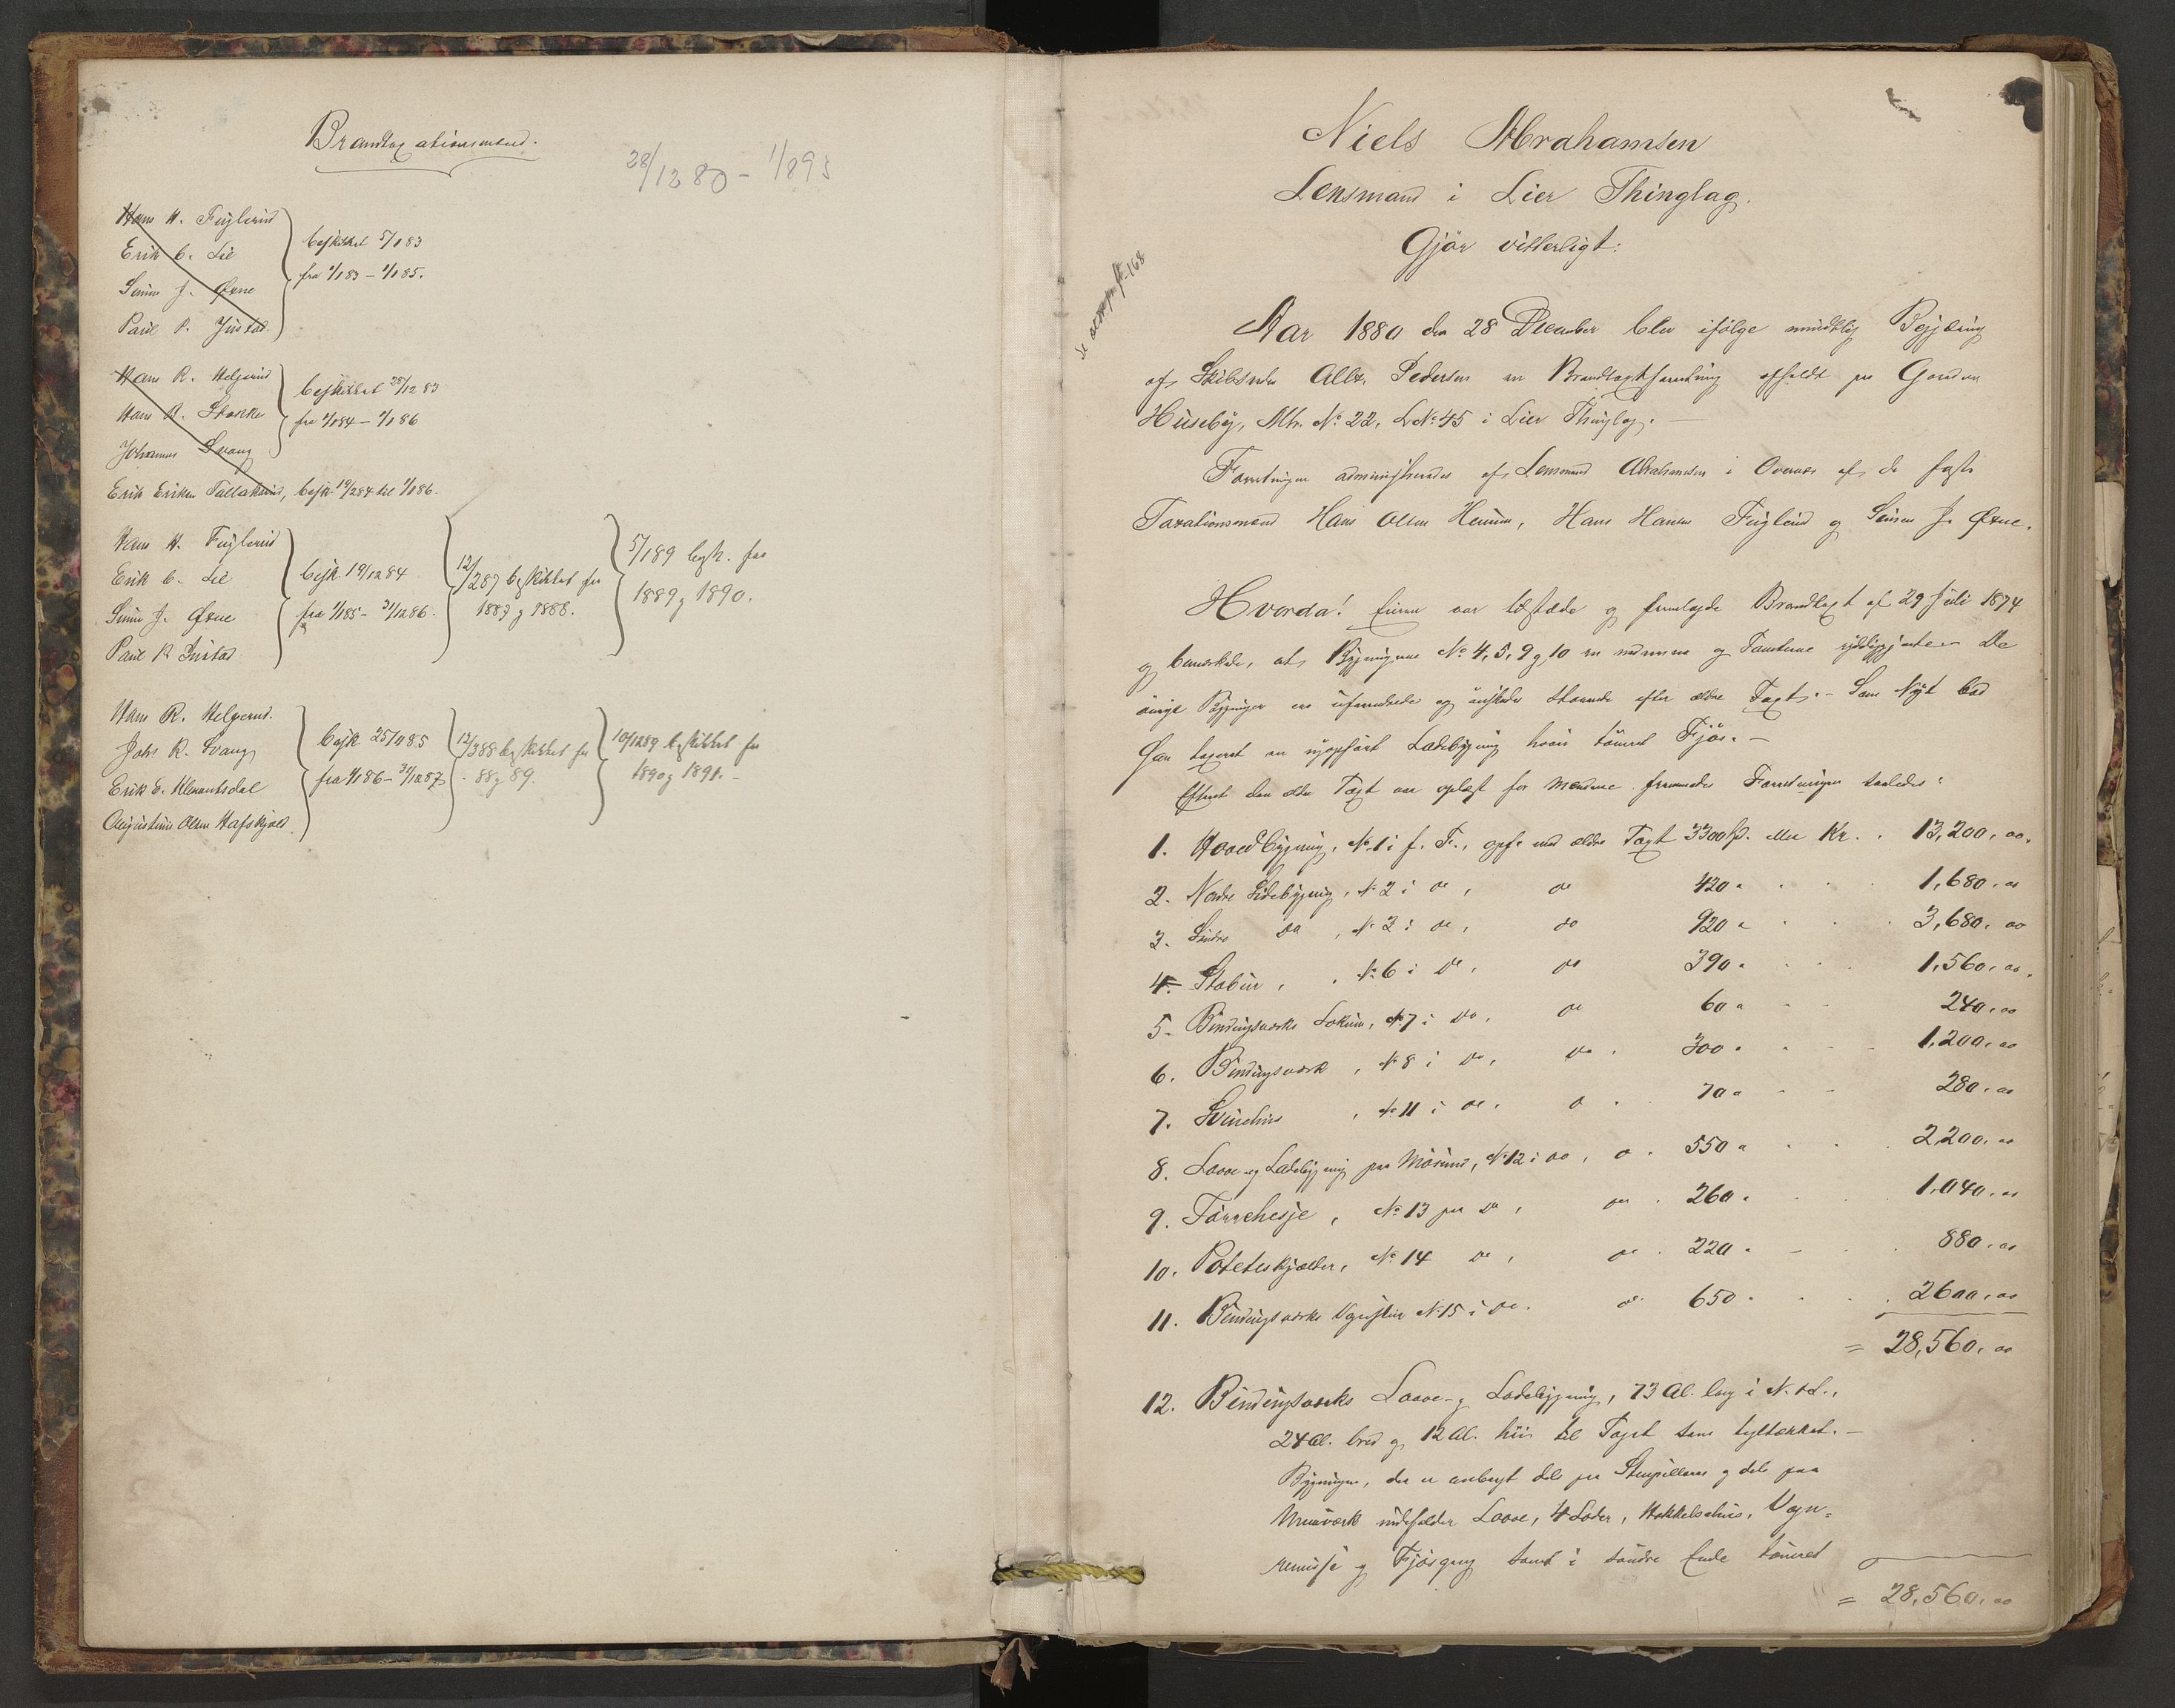 Brandtaxationsmænd.
28/12 80 - 1/893
Hans H. Fuglerud
Erik C. Lie
Simen J. Øxne
Paul P. Justad.
beskikket 5/1 83
fra 1/1 83 - 1/1 85.
Hans R. Helgerud
Hans H. Stokke
Johannes Svang
beskikket 28/12 83
fra 1/1 84 - 1/1 86
Erik Eriksen Tallakrud, besk. 19/2 84 til 1/1 86.
Hans H. Fuglerud
Erik C. Lie
Simen J. Øxne
Paul P. Justad
besk. 19/12 84
fra 1/1 85 - 31/12 86.
12/2 87 beskikket for
1887 og 1888.
5/1 89 besk. for
1889 og 1890.
Hans R. Helgerud.
Johs R. Svang
Erik E. Klemmetsdal
Augustinus Olsen Hafskjold.
besk 25/1 85
fra 1/1 86 - 31/12 87
12/3 88 beskikket for
88 og 89.
10/12 89 beskikket for
1890 og 1891. -
Niels Abrahamsen
Lensmand i Lier Thinglag.
Gjør vitterligt:
168
Aar 1880 den 28 December blev ifølge mundtlig Begjæring
af Skibsreder Alb. Pedersen en Brandtaxtforretning afholdt paa Gaarden
Huseby, Mtr. No. 22, L No. 45 i Lier Thinglag. -
Forretningen administreredes af Lensmand Abrahamsen i Overvær af de faste
Taxationsmænd Hans Olsen Hennum, Hans Hansen Fuglerud og Simen J. Øxne.
Hvorda! Eieren var tilstæde og fremlagde Brandtaxt af 29 Juli 1874
og bemærkede, at Bygningerne No. 4, 5, 9 og 10 er nedrevne og Tomterne ryddiggjorte. De
øvrige Bygninger ere uforandrede og ønskedes staaende efter ældre Taxt. - Som Nyt bad
han taxeret en nyopført Ladebygning hvori tømret Fjøs. -
Efterat den ældre Taxt var oplæst for Mændene fremmedes Forretningen saaledes:
1. Hovedbygning, No. 1 i f. T., opf. med ældre Taxt 3300 Sp. eller Kr. . 13,200.00.
2. Nordre Sidebygning, No. 2 i do, do 420 " 1,680.00
3. Søndre do, No. 3 i do, do 920 " 3,680.00
4. Stabur, No. 6 i do, do 390 " 1,560.00.
5. Bindingsværks Lokum, No. 7 i do, do 60 " 240.00
6. Bindingsværk, No. 8 i do, do. 300 " 1,200.00
7. Svinehus, No. 11 i do. do. 70 " 280.00
8. Laave- og Ladebygning paa Mørund, No. 12 i do, do. 550 " 2,200.00
9. Tørrehesje, No. 13 paa do, do. 260 " 1,040.00
10. Poteteskjælder, No. 14 do, do. 220 " 880.00
11. Bindingsværks Vognskur No. 15 i do. do. 650 " 2600.00
= 28,560.00
12. Bindingsværks Laave- og Ladebygning, 73 Al. lang i N. & S.,
24 Al. bred og 12 Al. høi til Taget som tegltækket. -
Bygningen, der er anbragt dels paa Stenpillarer og dels paa
Muurværk indeholder Laave, 4 Lader, Hakkelsehus, Vogn=
remisse og Fjøsgang samt i søndre Ende tømret
= 28,560.00